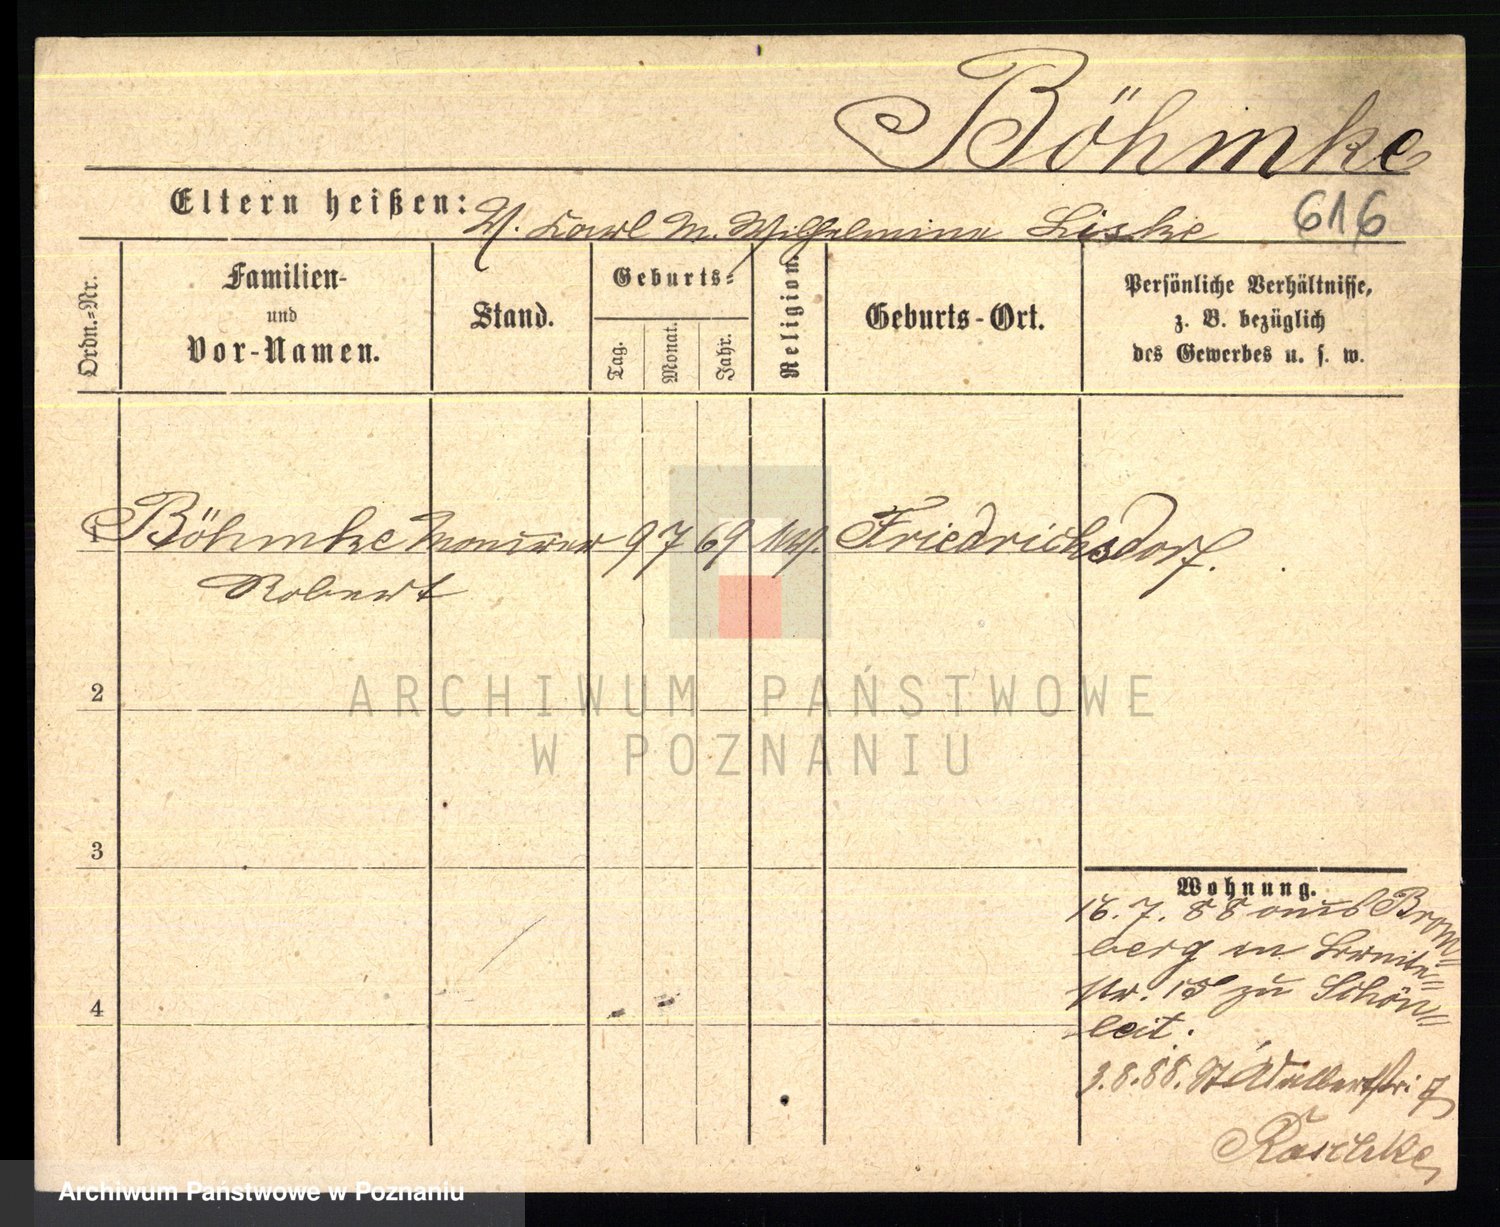 Böhmke
Eltern heißen: V. Karl M. Wilhelmine Liske
616
Ordn.-Nr.
Familien-
und
Vor-Namen.
Stand.
Geburts-
Tag.
Monat.
Jahr.
Religion.
Geburts-Ort.
Persönliche Verhältnisse,
z. B. bezüglich
des Gewerbes u. s. w.
1 Böhmke Maurer 9 7 69 Friedrichsdorf.
Robert
ARCHIWUM PAŃSTWOWE
W POZNANIU
2
3
4
Wohnung.
16. 7. 88 aus Brom-
berg
str. 15 zu Schön-
leit.
3. 8. 88. St Adalbertstr. 7
Raschke
Archiwum Państwowe w Poznaniu